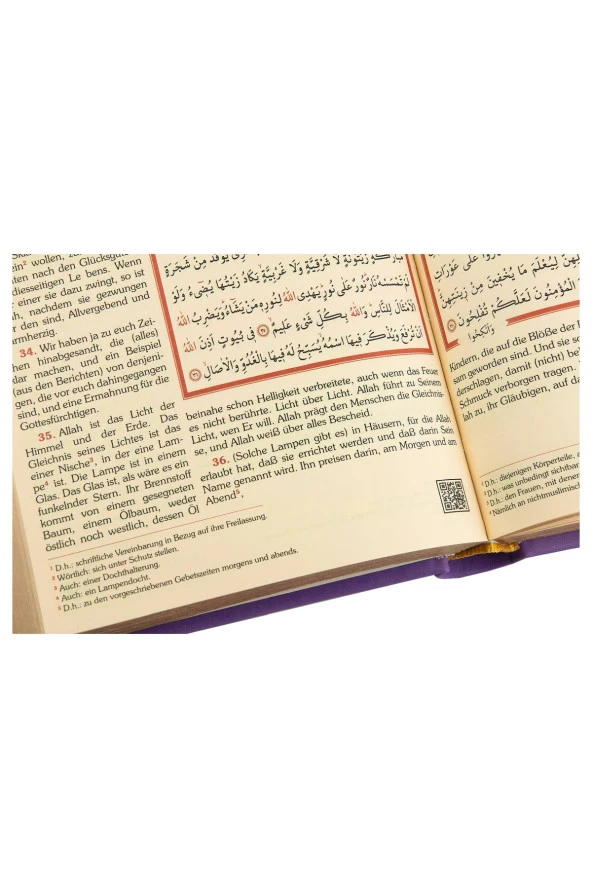 ein² wollen,
ten nach den Glücksgüt
diesseitigen Le bens. Wenn
einer sie dazu zwingt, so ist
h, nachdem sie gezwungen
den sind, Allvergebend und
rmherzig.
34. Wir haben ja zu euch Zei-
hen hinabgesandt, die (alles)
dar machen, und ein Beispiel
(aus den Berichten) von denjeni-
gen, die vor euch dahingegangen
sind, und eine Ermahnung für die
Gottesfürchtigen.
35. Allah ist das Licht der
Himmel und der Erde. Das
Gleichnis seines Lichtes ist das
einer Nische³, in der eine Lam-
pe⁴ ist. Die Lampe ist in einem
Glas. Das Glas ist, als wäre es ein
funkelnder Stern. Ihr Brennstoff
kommt von einem gesegneten
Baum, einem Ölbaum, weder
östlich noch westlich, dessen Öl
زَيْتُونَةٍ لَا شَرْقِيَّةٍ وَلَا غَرْبِيَّةٍ يَكَادُ زَيْتُهَا يُضِٓيءُ وَلَوْ
لَمْ تَمْسَسْهُ نَارٌ نُورٌ عَلَى نُورٍ يَهْدِي اللهُ لِنُورِهِ مَنْ يَشَٓاءُ وَيَضْرِبُ اللهُ
الْاَمْثَالَ لِلنَّاسِ وَاللهُ بِكُلِّ شَيْءٍ عَلِيمٌ ﴿٣٥﴾ فِي بُيُوتٍ اَذِنَ اللهُ
اَنْ تُرْفَعَ وَيُذْكَرَ فِيهَا اسْمُهُ يُسَبِّحُ لَهُ فِيهَا بِالْغُدُوِّ وَالْاٰصَالِ ﴿٣٦﴾
beinahe schon Helligkeit verbreitete, auch wenn das Feuer
es nicht berührte. Licht über Licht. Allah führt zu Seinem
Licht, wen Er will. Allah prägt den Menschen die Gleichnis-
se, und Allah weiß über alles Bescheid.
36. (Solche Lampen gibt es) in Häusern, für die Allah
erlaubt hat, daß sie errichtet werden und daß darin Sein
Name genannt wird. Ihn preisen darin, am Morgen und am
Abend⁵,
¹ D.h.: schriftliche Vereinbarung in Bezug auf ihre Freilassung.
² Wörtlich: sich unter Schutz stellen.
³ Auch: einer Dochthalterung.
⁴ Auch: ein Lampendocht.
⁵ D.h.: zu den vorgeschriebenen Gebetszeiten morgens und abends.
عَلٰى عَوْرَاتِ
لِيُعْلَمَ مَا يُخْفِينَ مِنْ زِينَتِهِنَّ
الْمُؤْمِنُونَ لَعَلَّكُمْ تُفْلِحُونَ ﴿٣١﴾
وَاَنْكِحُوا
Kindern, die auf die Blöße der
sam geworden sind. Und sie so
derschlagen, damit (nicht) be
Schmuck verborgen tragen.
lah zu, ihr Gläubigen, auf da
¹ D.h.: diejenigen Körperteile,
² D.h.: was unbedingt sichtbar
³ D.h.: den Frauen, mit denen
⁴ Nämlich an nichtmuslimisch